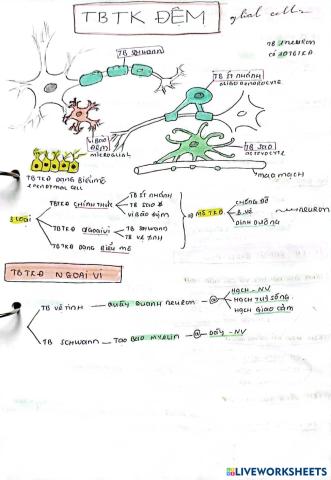 TBTK ĐỆM glial cells
TB SCHWANN
TB ÍT NHÁNH
OLIGODENDROCYTE
VI BÀO
ĐỆM
MICROGLIAL
TB SAO
ASTROCYTE
MAO MẠCH
TBTKĐ DẠNG BIỂU MÔ
EPENDYMAL CELL
3 LOẠI
TBTKĐ CHÍNH THỨC
TB ÍT NHÁNH
TB SAO
VI BÀO ĐỆM
TBTKĐ NGOẠI VI
TB SCHWANN
TB VỆ TINH
TBTKĐ DẠNG BIỂU MÔ
MÔ TKĐ
CHỐNG ĐỠ
B.VỆ
DINH DƯỠNG
NEURON
TBTKĐ NGOẠI VI
TB VỆ TINH QUÂY QUANH NEURON @
HẠCH - NV
HẠCH TUỶ SỐNG
HẠCH GIAO CẢM
TB SCHWANN TẠO BAO MYELIN @ DÂY - NV
LIVEWORKSHEETS